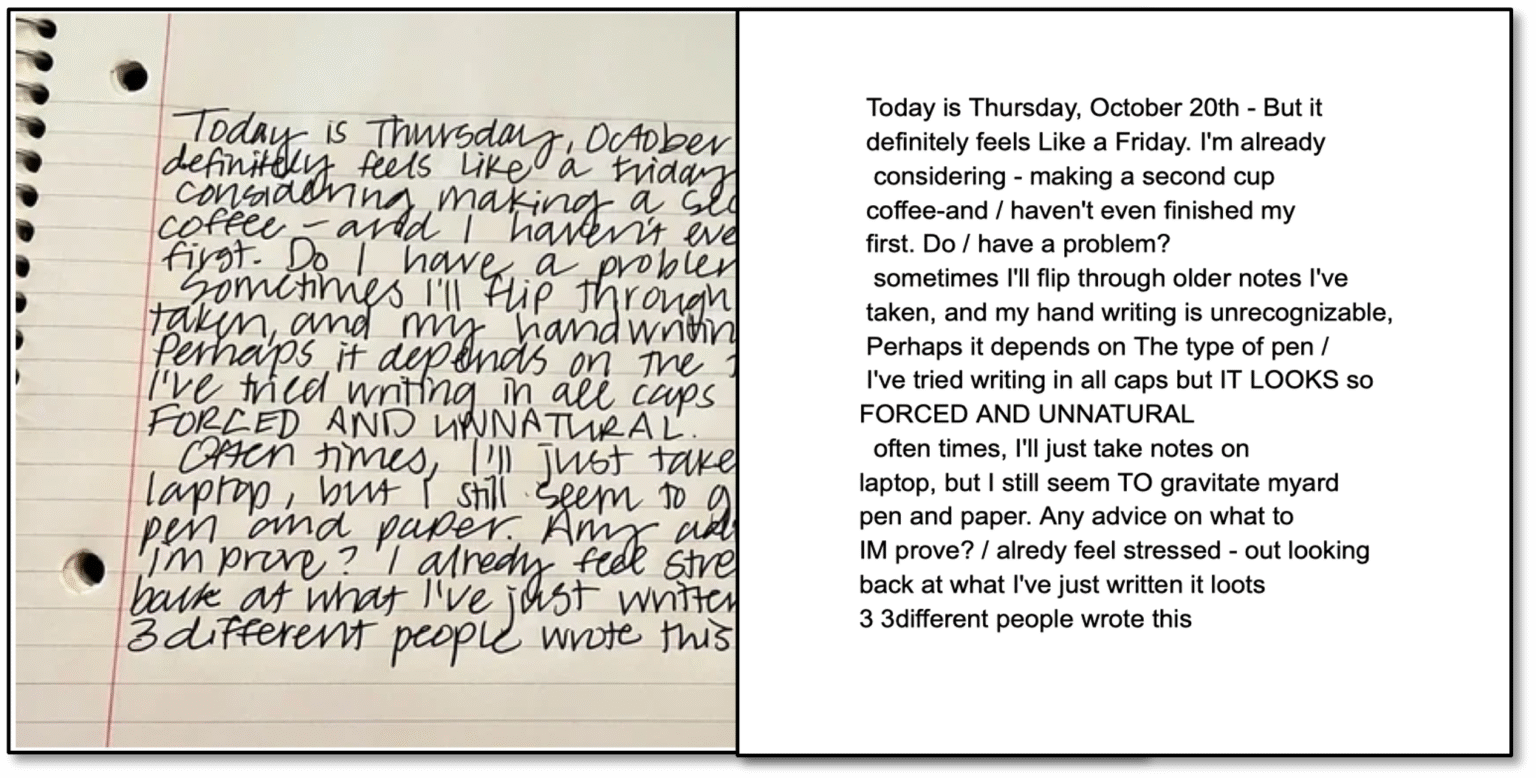 Today is Thursday, October
definitely feels like a Friday
considering making a sec
coffee - and I haven't eve
first. Do I have a problem
Sometimes I'll flip through
taken, and my handwritin
Perhaps it depends on the
I've tried writing in all caps
FORCED AND UNNATURAL.
Often times, I'll just take
laptop, but I still seem to g
pen and paper. Any ad
improve? I alredy feel stre
back at what I've just written
3 different people wrote this
Today is Thursday, October 20th - But it
definitely feels Like a Friday. I'm already
considering - making a second cup
coffee-and / haven't even finished my
first. Do / have a problem?
sometimes I'll flip through older notes I've
taken, and my hand writing is unrecognizable,
Perhaps it depends on The type of pen /
I've tried writing in all caps but IT LOOKS so
FORCED AND UNNATURAL
often times, I'll just take notes on
laptop, but I still seem TO gravitate myard
pen and paper. Any advice on what to
IM prove? / alredy feel stressed - out looking
back at what I've just written it loots
3 3different people wrote this